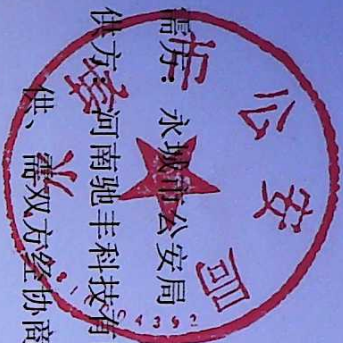 需方：永城市公安局
供方：河南驰丰科技有
供、需双方经协商
市公安局
04392